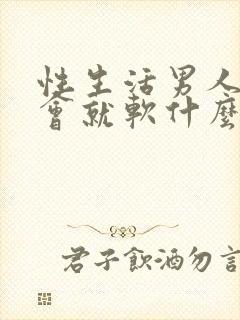 性生活男人
會就軟什麼
君子飲酒勿言